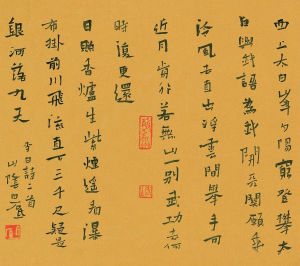 西上太白峰夕陽窮登攀太
白與我語為我開天關願乘
泠風去直出浮雲間舉手可
近月前行若無山一別武功去何
時復更還
日照香爐生紫煙遙看瀑
布掛前川飛流直下三千尺疑是
銀河落九天
李白詩二首
山陰白